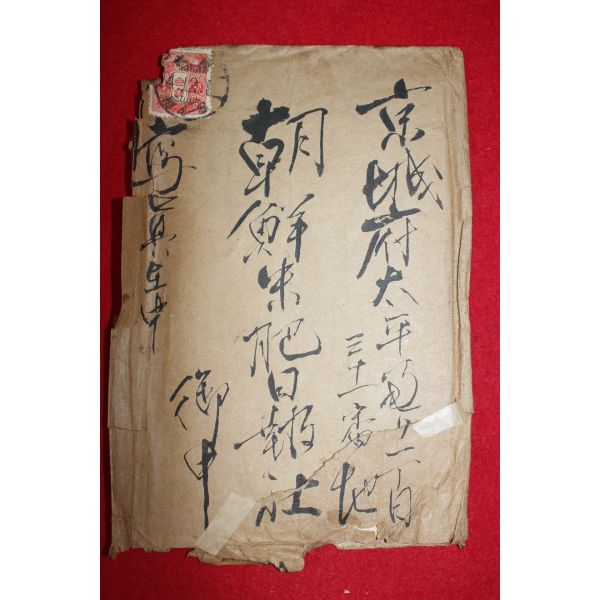 京城府太平通二丁目
三十一番地
朝鮮米肥日報社
御中
寫眞在中